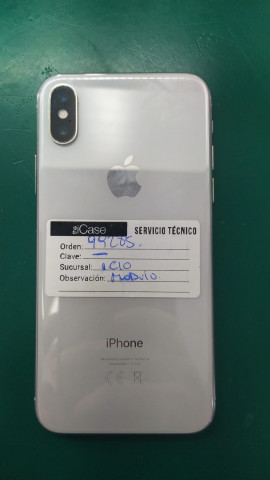 Case SERVICIO TÉCNICO
Orden: 99285.
Clave: —
Sucursal:
Observación: Modulo
iPhone